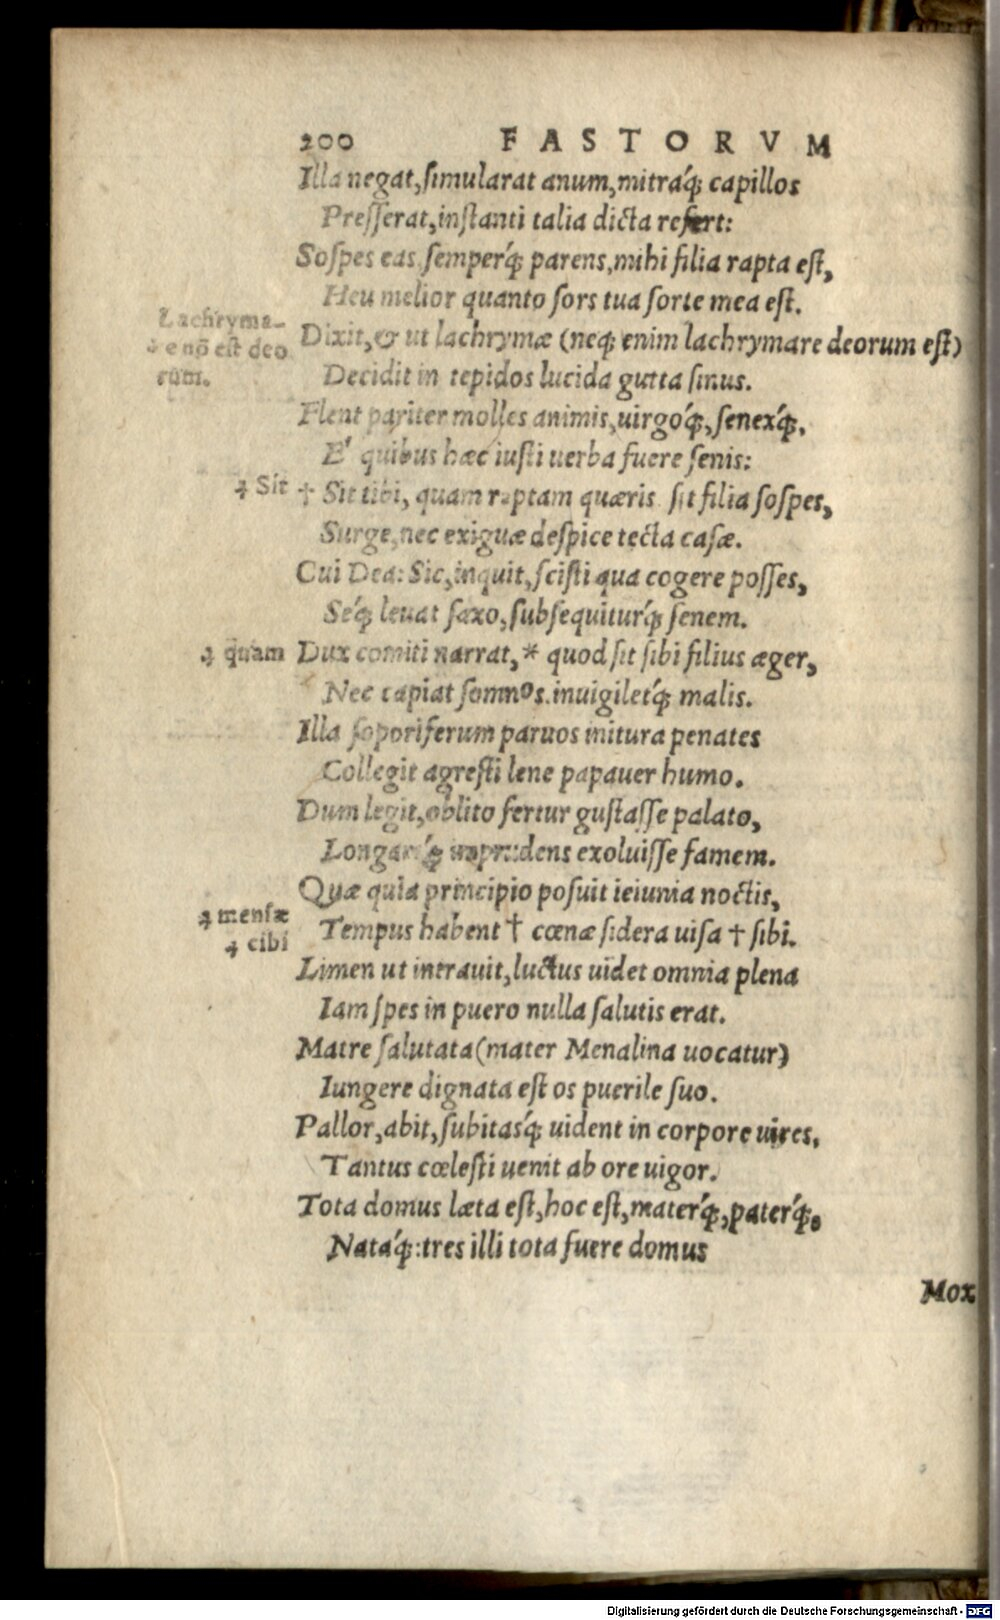 200 FASTORVM
Illa negat, simularat anum, mitráq́; capillos
Presserat, instanti talia dicta refert:
Sospes eas semperq́; parens, mihi filia rapta est,
Heu melior quanto sors tua sorte mea est.
Lachryma-
re nō est deo
rum.
Dixit, & ut lachrymæ (neq; enim lachrymare deorum est)
Decidit in tepidos lucida gutta sinus.
Flent pariter molles animis, uirgoq́;, senexq́;.
E' quibus hæc iusti uerba fuere senis:
⁊ Sit
† Sit tibi, quam raptam quæris sit filia sospes,
Surge, nec exiguæ despice tecta casæ.
Cui Dea: Sic, inquit, scisti qua cogere posses,
Séq́; leuat saxo, subsequiturq́; senem.
⁊ quam
Dux comiti narrat, * quod sit sibi filius æger,
Nec capiat somnos. inuigiletq́; malis.
Illa soporiferum paruos initura penates
Collegit agresti lene papauer humo.
Dum legit, oblito fertur gustasse palato,
Longamq́; imprudens exoluisse famem.
Quæ quia principio posuit ieiunia noctis,
⁊ mensæ
⁊ cibi
Tempus habent † cœnæ sidera uisa † sibi.
Limen ut intrauit, luctus uidet omnia plena
Iam spes in puero nulla salutis erat.
Matre salutata (mater Menalina uocatur)
Iungere dignata est os puerile suo.
Pallor, abit, subitasq́; uident in corpore uires,
Tantus cœlesti uenit ab ore uigor.
Tota domus læta est, hoc est, materq́;, paterq́;,
Natáq́;: tres illi tota fuere domus
Mox
Digitalisierung gefördert durch die Deutsche Forschungsgemeinschaft - DFG